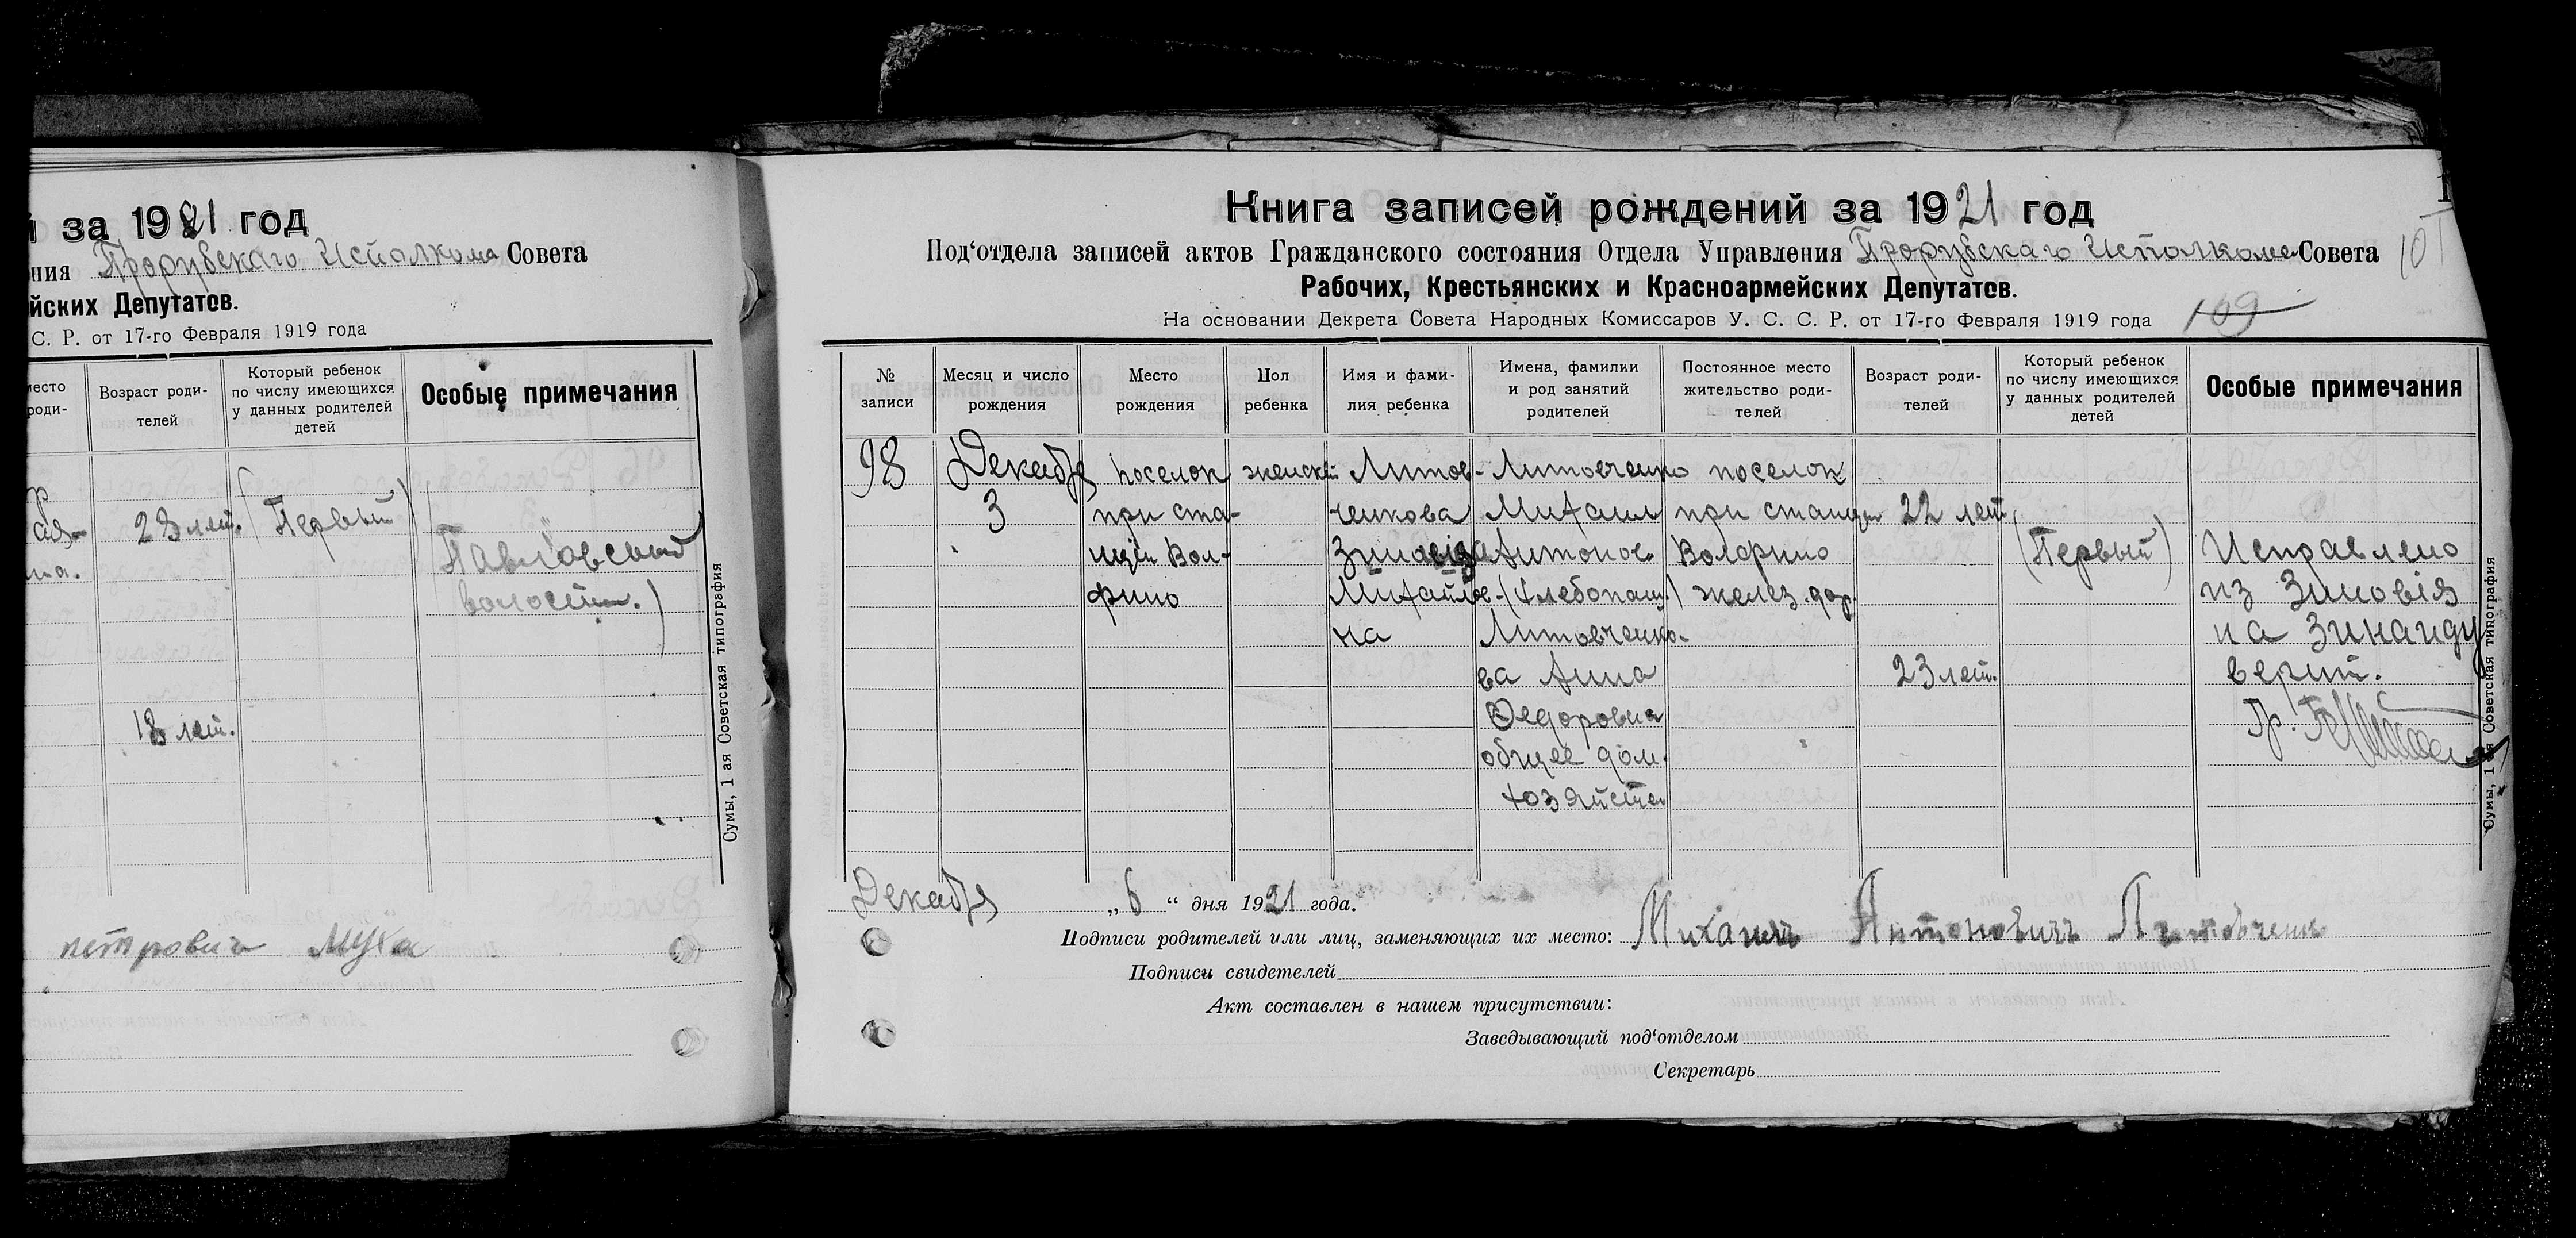 й за 1921 год
ния Прорувскаго Исполкома Совета
йских Депутатов.
С. Р. от 17-го Февраля 1919 года
место
роди-
Возраст роди-
телей
Который ребенок
по числу имеющихся
у данных родителей
детей
Особые примечания
28 лет.
(Первый)
Павловской
волости.)
18 лет.
Сумы, 1 ая Советская типография
петрович Муха
Книга записей рождений за 1921 год
Под'отдела записей актов Гражданского состояния Отдела Управления Прорувскаго Исполкома Совета
Рабочих, Крестьянских и Красноармейских Депутатов.
На основании Декрета Совета Народных Комиссаров У. С. С. Р. от 17-го Февраля 1919 года
109
101
№
записи
Месяц и число
рождения
Место
рождения
Пол
ребенка
Имя и фами-
лия ребенка
Имена, фамилии
и род занятий
родителей
Постоянное место
жительство роди-
телей
Возраст роди-
телей
Который ребенок
по числу имеющихся
у данных родителей
детей
Особые примечания
98
Декабря
3
поселок
при ста-
нции Вол-
фино
женск
Литов-
ченкова
Зинаида
Михайлов-
на
Литовченко
Михаил
Антонов.
(хлебопаш.)
Литовченко-
ва Анна
Федоровна
общее дом.
хозяйство
поселок
при станции
Волфино
желез. дор.
22 лет
23 лет.
(Первый)
Исправлено
из Зиновія
на Зинаиду
верит.
Сумы, 1 ая Советская типография
Декабря „6“ дня 1921 года.
Подписи родителей или лиц, заменяющих их место: Михаилъ Антоновичъ Литовченко
Подписи свидетелей
Акт составлен в нашем присутствии:
Заведывающий под'отделом
Секретарь